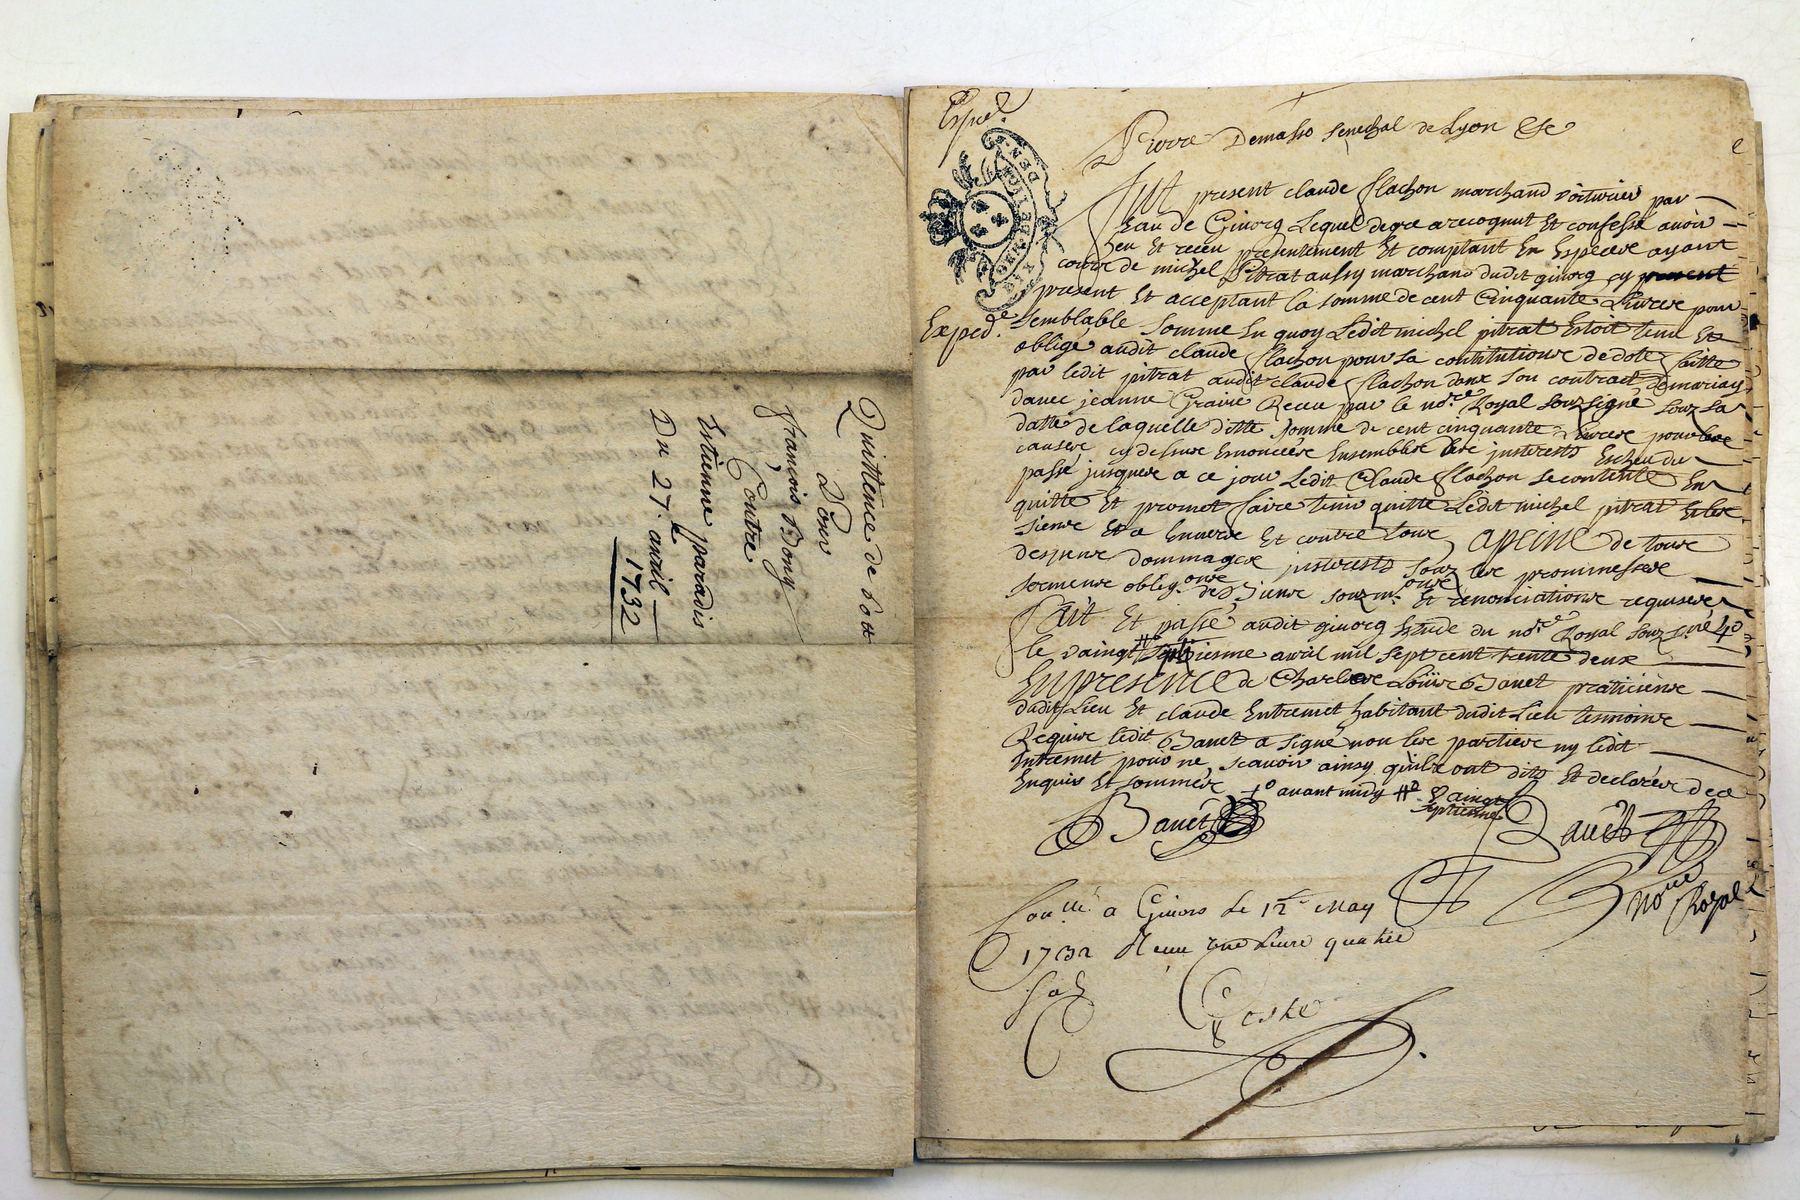 Quittence de 60 tt
Pour
françois Bony
Contre
Estienne paradis
Du 27. avril
1732
Exped.
Pierre Demasso senechal de Lyon &c
GEN. DE LYON
fut present claude flachon marchand voiturier par
Eau de Givorg Lequel de gré a recognut Et confessé avoir
heu Et receu presentement Et comptant En Especes ayant
cours de michel pitrat aussy marchand dudit givorg cy present
present Et acceptant la somme de cent Cinquante Livres pour
Exped.e
semblable somme En quoy Ledit michel pitrat Estoit tenu Et
obligé audit claude flachon pour la constitutions de dote faitte
par ledit pitrat audit claude flachon dans son contract de mariag
d'avec jeanne Receu par le no.re Royal souzsigné souz sa
datte de laquelle ditte somme de cent cinquante Livres pour les
causes cy dessus Enoncées Ensembles des jnterests Escheu du
passé jusques a ce jour Ledit Claude flachon se contente En
quitte Et promet faire tenir quitte Ledit michel pitrat Et les
siens Et a Envers Et contre tous apeine de tous
despens dommages jnterests souz les prommesses
sermens oblig.ons des Biens souzm.ons Et renonciations requises
fait Et passé audit givorg Estude du no.re Royal souz s.né +o
le vaingt iesme avril mil sept cent trente deux
En presence de Charles Loüis Bauet praticiens
dudit Lieu Et claude Entremet habitant dudit Lieu tesmoins
Requis ledit Bauet a signé non les parties ny ledit
Entremet pour ne scavoir ainsy quils ont dits Et declarés de ce
Enquis Et sommés +o avant midy #o vaingt
septiesme
Bauet
Bauet
no.re Royal
Con.llé a Givors Le 12.e May
1732 Receu une Livre quatre
sols
Coste